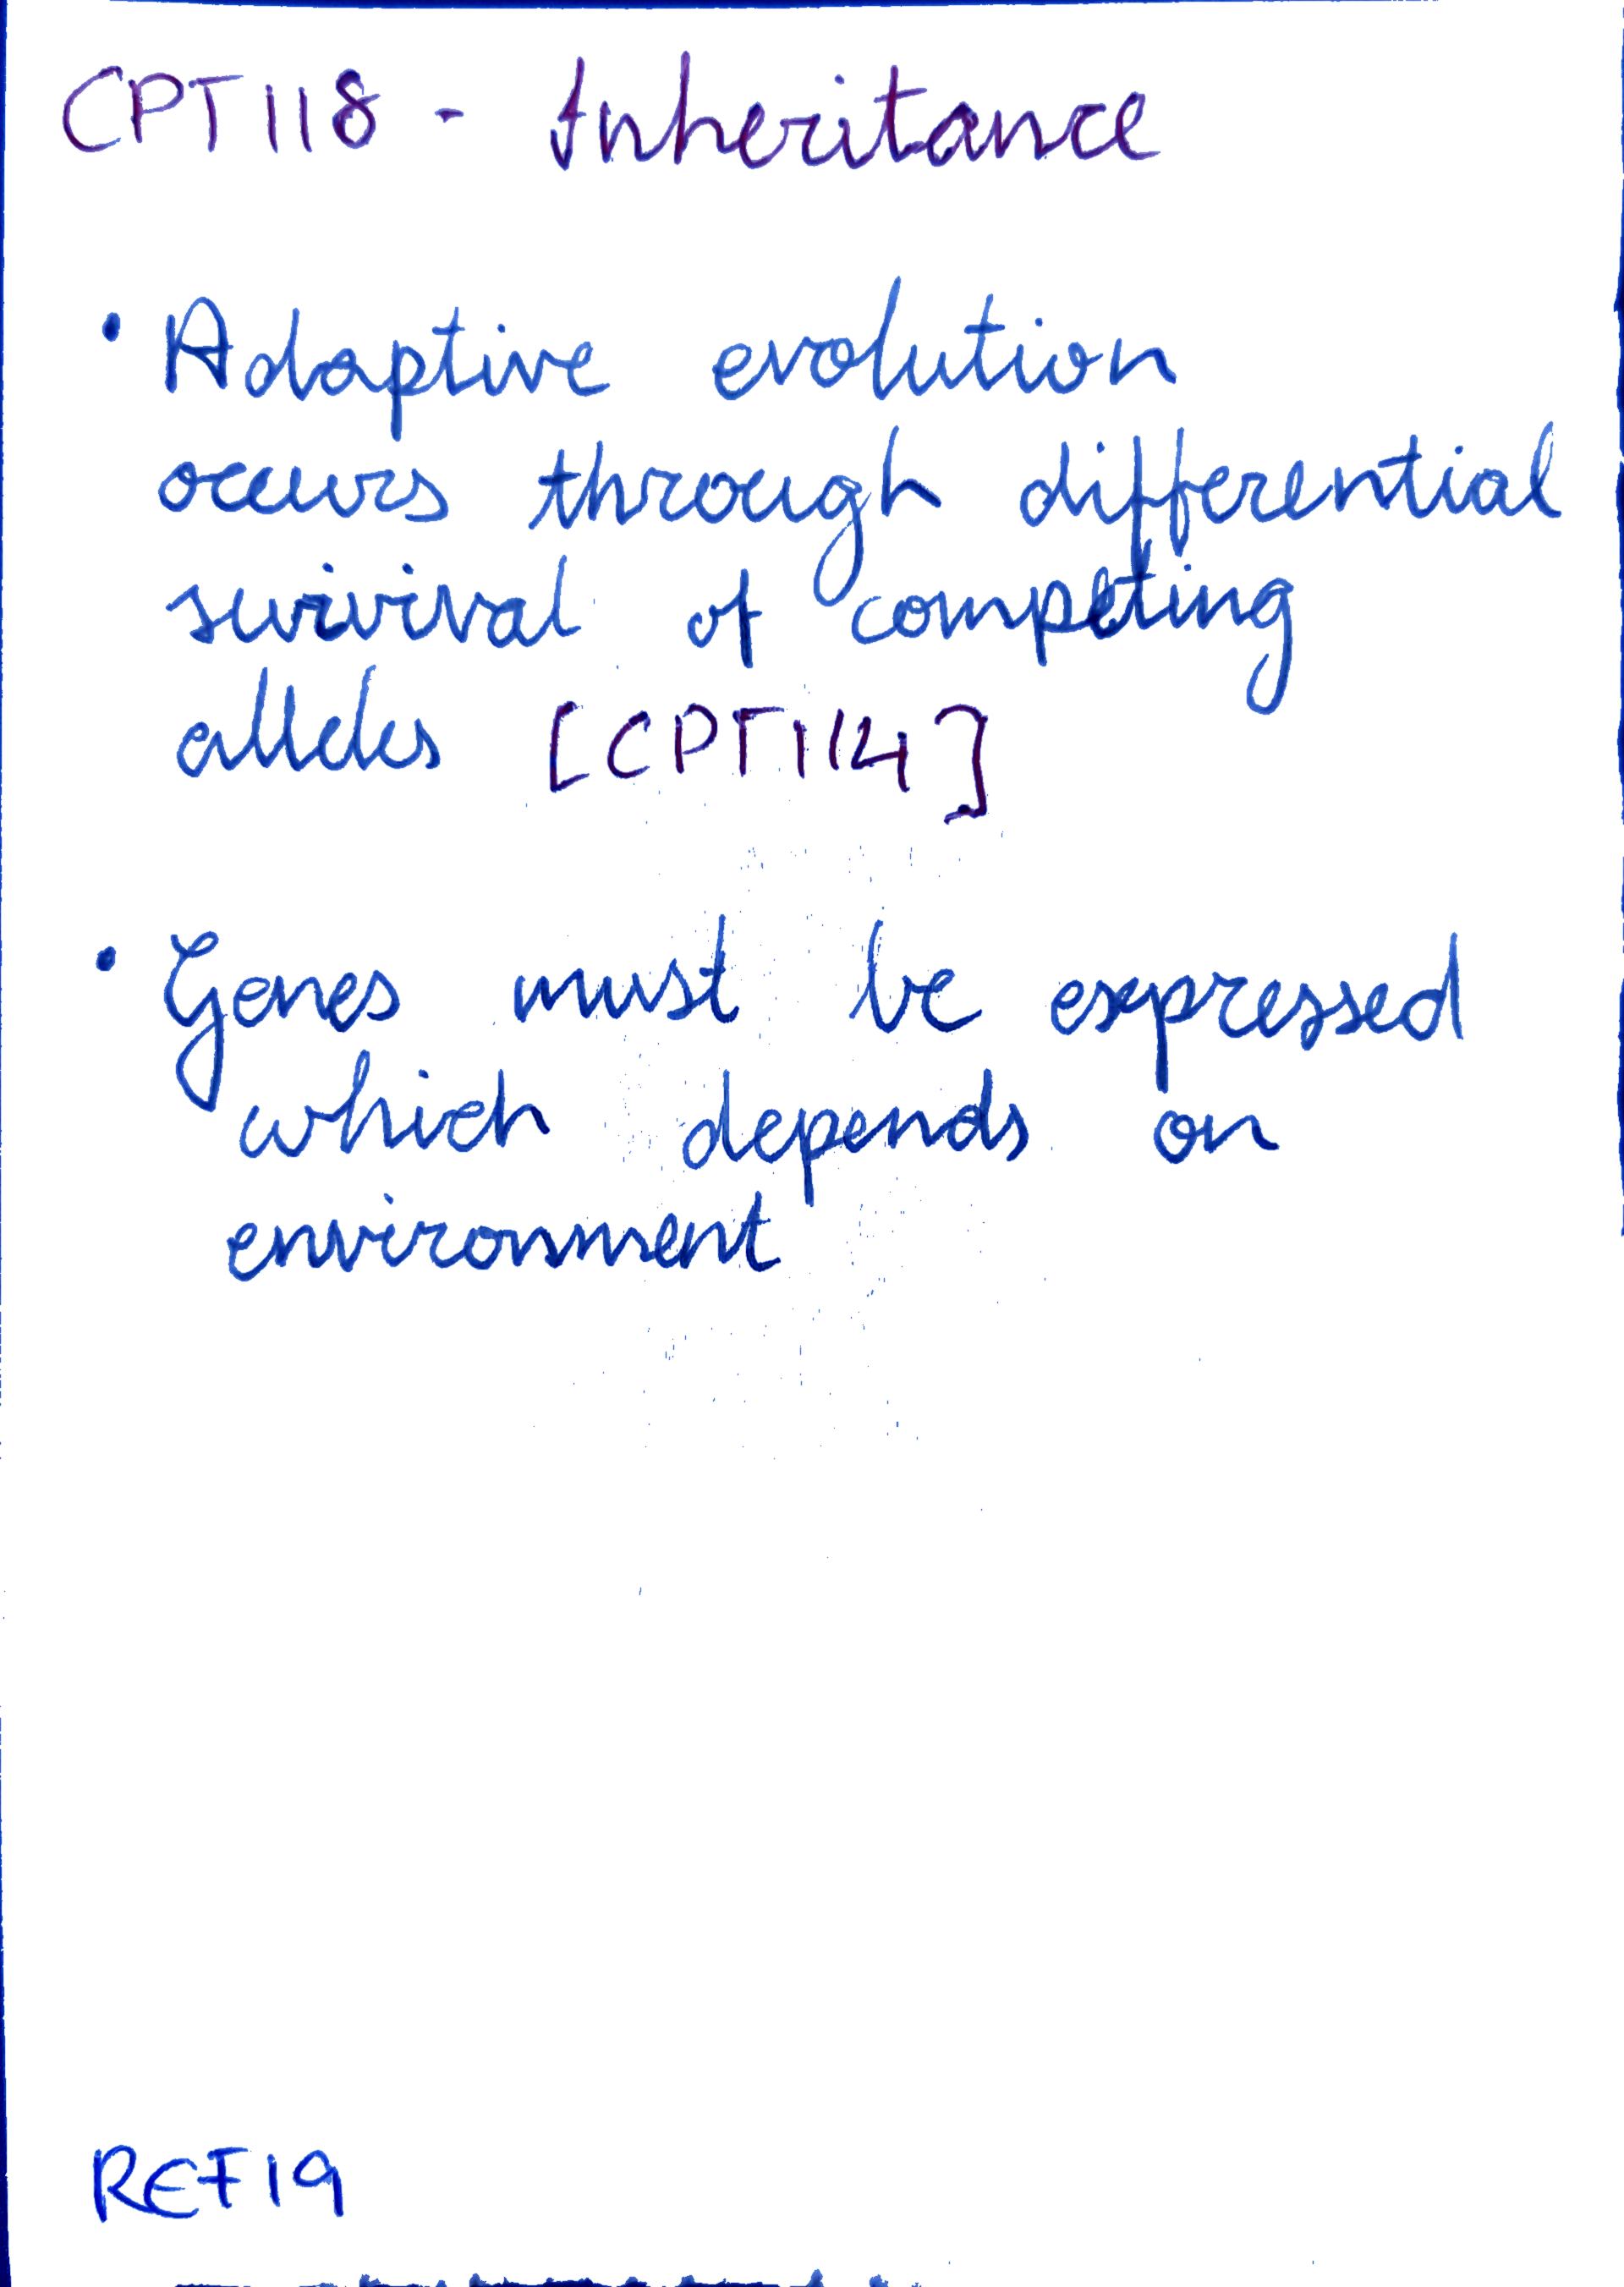 CPT118 - Inheritance
• Adaptive evolution
occurs through differential
survival of competing
alleles [CPT114]
• Genes must be expressed
which depends on
environment
REF19